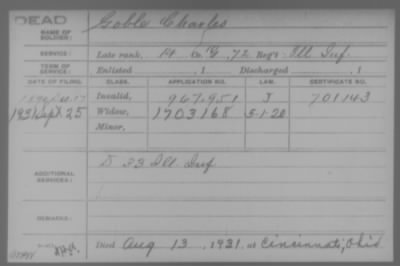 DEAD
NAME OF SOLDIER: Goble Charles
SERVICE: Late rank, Pt Co. G, 72 Reg't Ill Inf.
TERM OF SERVICE: Enlisted , 1 Discharged , 1
DATE OF FILING. CLASS. APPLICATION NO. LAW. CERTIFICATE NO.
Invalid, 967,951 J 701143
1931 Sept 25 Widow, 1703168 5-1-20
Minor,
ADDITIONAL SERVICES: D 23 Ill. Inf
REMARKS:
Died Aug 13, 1931, at Cincinnati, Ohio